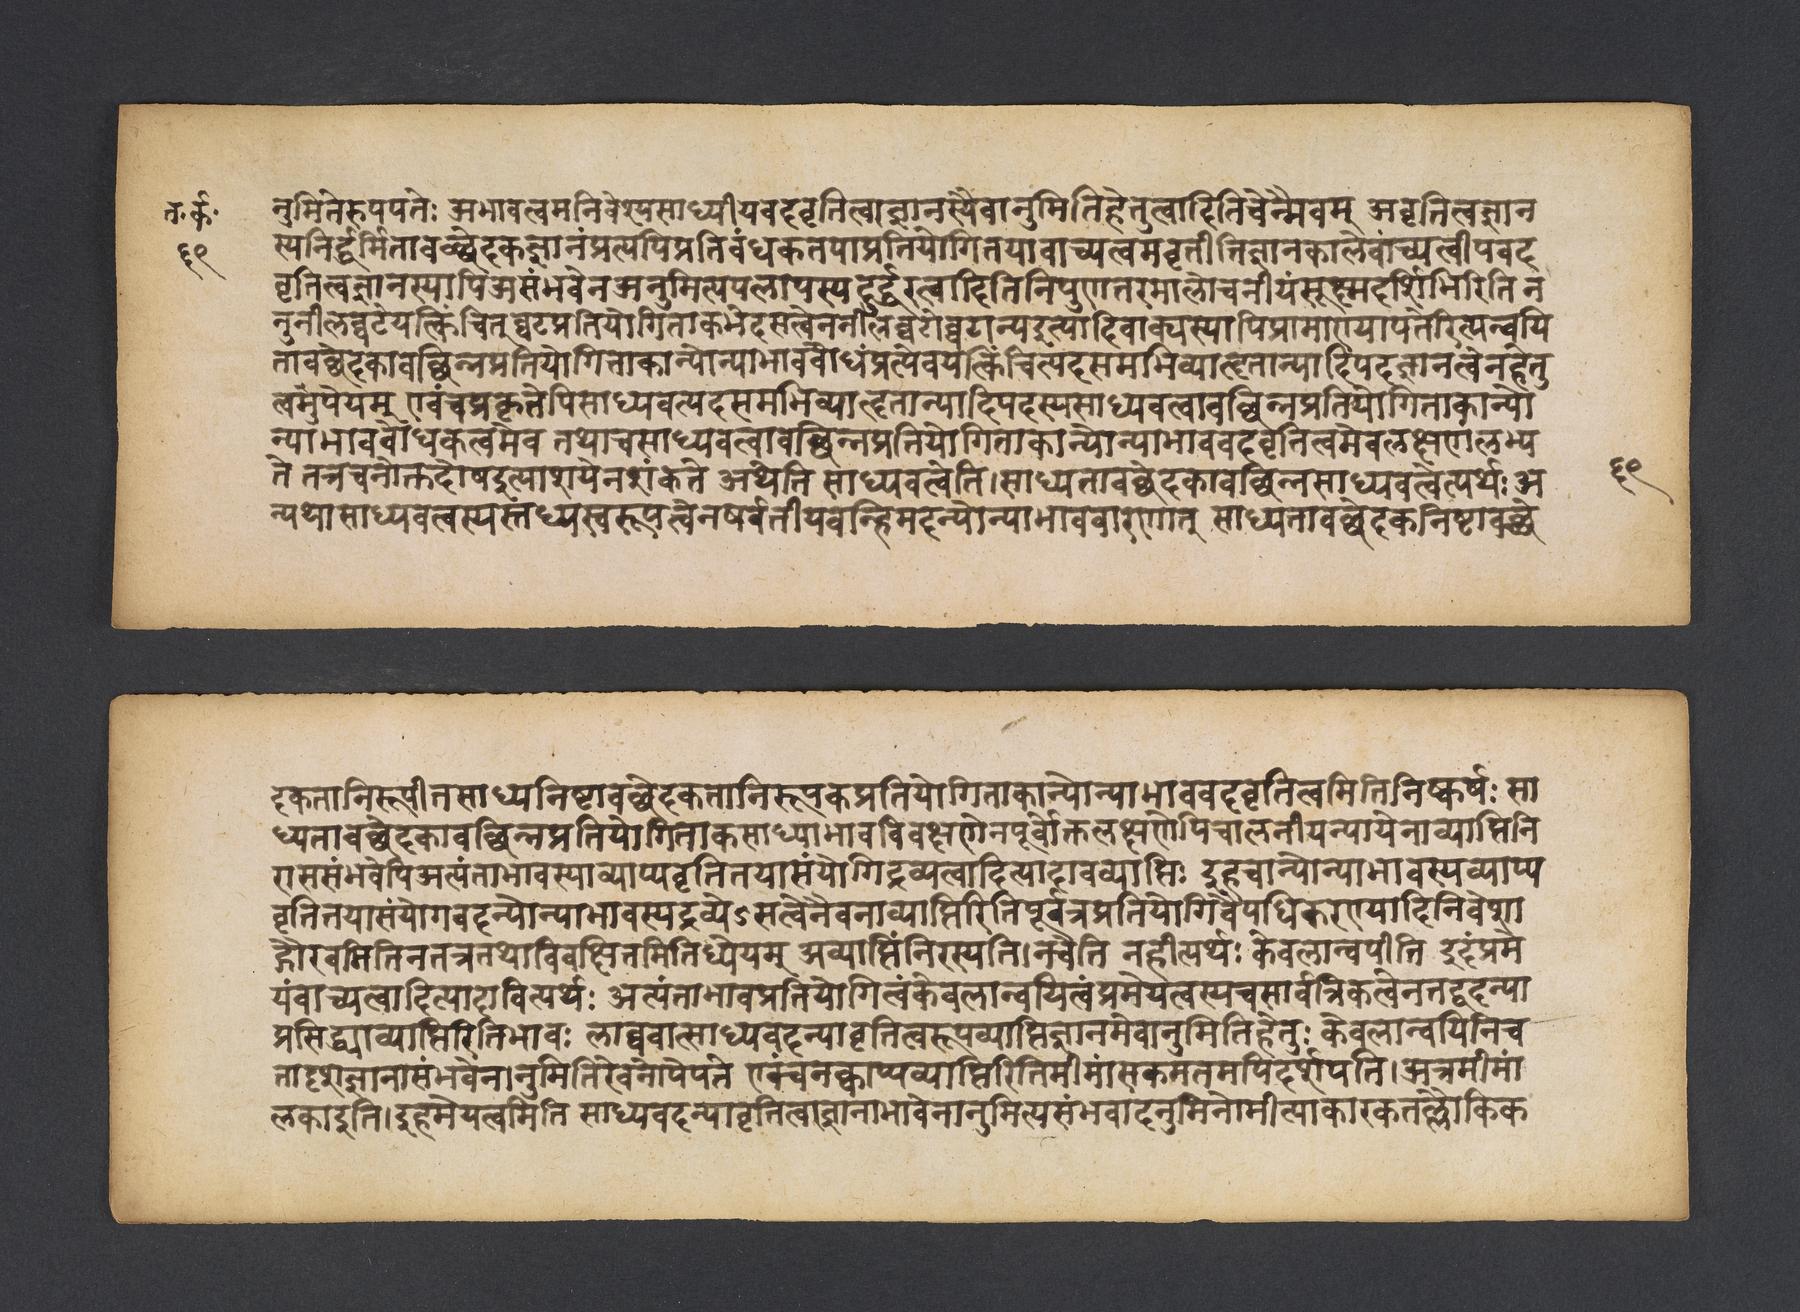 त॰र्क॰
६९
नुमितेरुपपतेः अभावत्वमनिवेश्यसाध्यीयवदवृतित्वाज्ञानस्यैवानुमितिहेतुत्वादितिचेन्मैवम् अवृतित्वज्ञान
स्यनिर्द्धर्मितावच्छेदकज्ञानंप्रत्यपिप्रतिवंधकतपाप्रतियोगितयावाच्यत्वमवृतीत्तिज्ञानकालेवाच्यत्वीपवद
वृतित्वज्ञानस्यापिअसंभवेनअनुमित्यपलापस्यदुर्द्धरत्वादितिनिपुणतरमालोचनीयंसूक्ष्मदर्शिभिरिति न
नुनीलघ्घटंयत्किंचितुघ्घटप्रतियोगिताकभेदसत्वेननीलघ्घटोघ्घटान्यइत्यादिवाक्यस्यापिप्रामाण्यापतेरित्यन्वयि
तावच्छेदकावच्छिन्नप्रतियोगिताकान्योन्याभाववोधंप्रत्येवयत्किंचित्पदसमभिव्याहृतान्यादिपदज्ञानत्वेनहेतु
त्वमुपेयम् एवंचप्रकृतेपिसाध्यवत्पदसमभिव्याहृतान्यादिपदस्यसाध्यवत्वावच्छिन्नप्रतियोगिताकान्यो
न्याभाववोधकत्वमेव तथाचसाध्यवत्वावच्छिन्नप्रतियोगिताकान्योन्याभाववदवृतित्वमेवलक्षणलभ्य
ते तत्रचनोक्तदोषइत्याशयेनशंकते अथेति साध्यवत्वेति।साध्यतावच्छेदकावच्छिन्नसाध्यवत्वेत्यर्थः अ
न्यथासाध्यवत्वस्यस्तध्यस्वरूपत्वेनषर्वतीयवन्हिमदन्योन्याभाववारणातु साध्यतावच्छेदकनिष्टावच्छे
६९
दकतानिरूपीतसाध्यनिष्टावच्छेदकतानिरूपकप्रतियोगिताकान्योन्याभाववदवृतित्वमितिनिष्कर्षः सा
ध्यतावच्छेदकावच्छिन्नप्रतियोगिताकसाध्याभावविवक्षणेनपूर्वोक्तलक्षणेपिचालनीयन्यायेनाव्याप्तिनि
राससंभवेपिअत्यंताभावस्याव्याप्यवृतितयासंयोगिद्रव्यत्वादित्यादावव्याप्तिः इहचान्योन्याभावस्यव्याप्य
वृतितयासंयोगवदन्योन्याभावस्यद्रव्येऽसत्वेनैवनाव्याप्तिरितिपूर्वत्रप्रतियोगिवैपधिकरण्यादिनिवेशा
द्गौरवमितिनतत्रतथाविवक्षितमितिध्येयम् अव्याप्तिंनिरस्यति।नचेति नहीत्यर्थः केवलान्वपीति इदंप्रमे
यंवाच्यत्वादित्यादावित्यर्थः अत्यंताभावप्रतियोगित्वंकेवलान्वयित्वंप्रमेयत्वस्यचसार्वत्रिकत्वेनतद्वदन्या
प्रसिद्ध्याव्याप्तिरितिभावः लाघ्घवात्साध्यवदन्यावृतित्वरूपव्याप्तिज्ञानमेवानुमितिहेतुः केवलान्वयिनिच
तादृशज्ञानासंभवेन।नुमितिरेवनोपेपते एवंचनक्वाप्यव्याप्तिरितिमीमांसकमतमपिदर्शपति।अत्रमीमां
लकाइति।इहमेयत्वमिति साध्यवदन्यावृतित्वाज्ञानाभावेनानुमित्यसंभवादनुमिनोमीत्याकारकतल्लौकिक